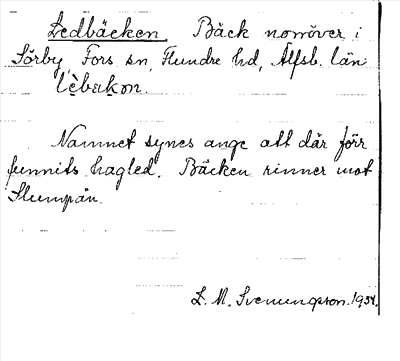 Ledbäcken. Bäck norröver i
Sörby, Fors sn, Flundre hd, Älfsb. län
lèbakon.
Namnet synes ange att där förr
funnits hagled. Bäcken rinner mot
Slumpån.
L. M. Svenungsson. 1934.